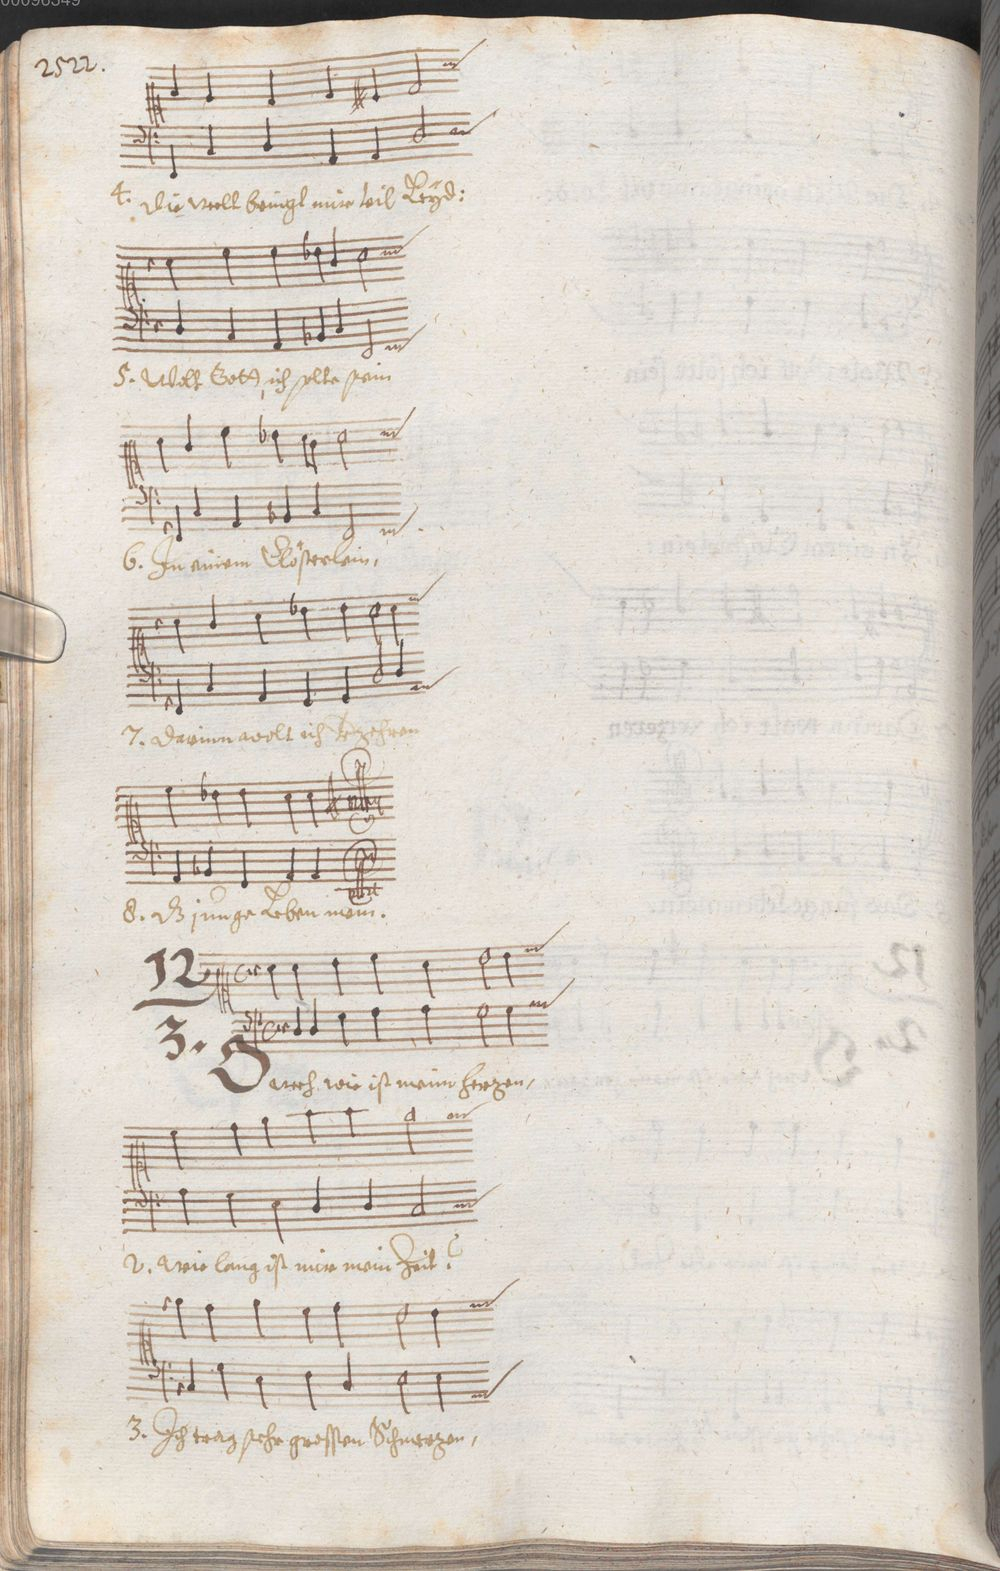 00096349
2522.
4. Die welt bringt mir vil Leyd:
5. Wolt Gott, ich solte sein
6. In einem Clösterlein,
7. Darinn wolt ich verzehren
8. Dz junge Leben mein.
12
3. O wech, wie ist meim hertzen,
2. Wie lang ist mir mein Zeit?
3. Ich trag sehr grossen Schmertzen,